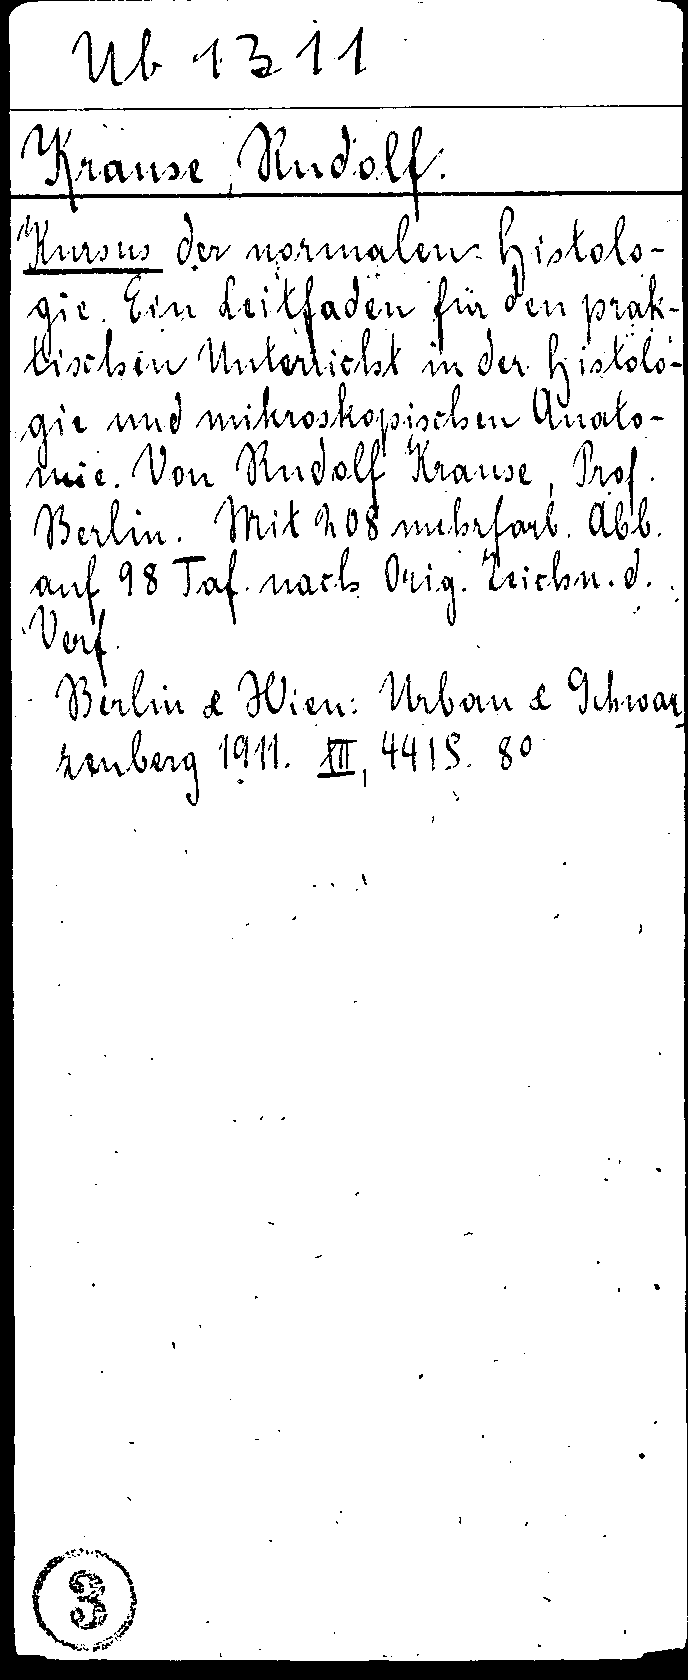 Ub 1311
Krause, Rudolf.
Kursus der normalen Histolo-
gie. Ein Leitfaden für den prak-
tischen Unterricht in der Histolo-
gie und mikroskopischen Anato-
mie. Von Rudolf Krause, Prof.
Berlin. Mit 208 mehrfarb. Abb.
auf 98 Taf. nach Orig. Zeichn. d.
Verf.
Berlin & Wien: Urban & Schwar
zenberg 1911. XII, 441S. 8o
3